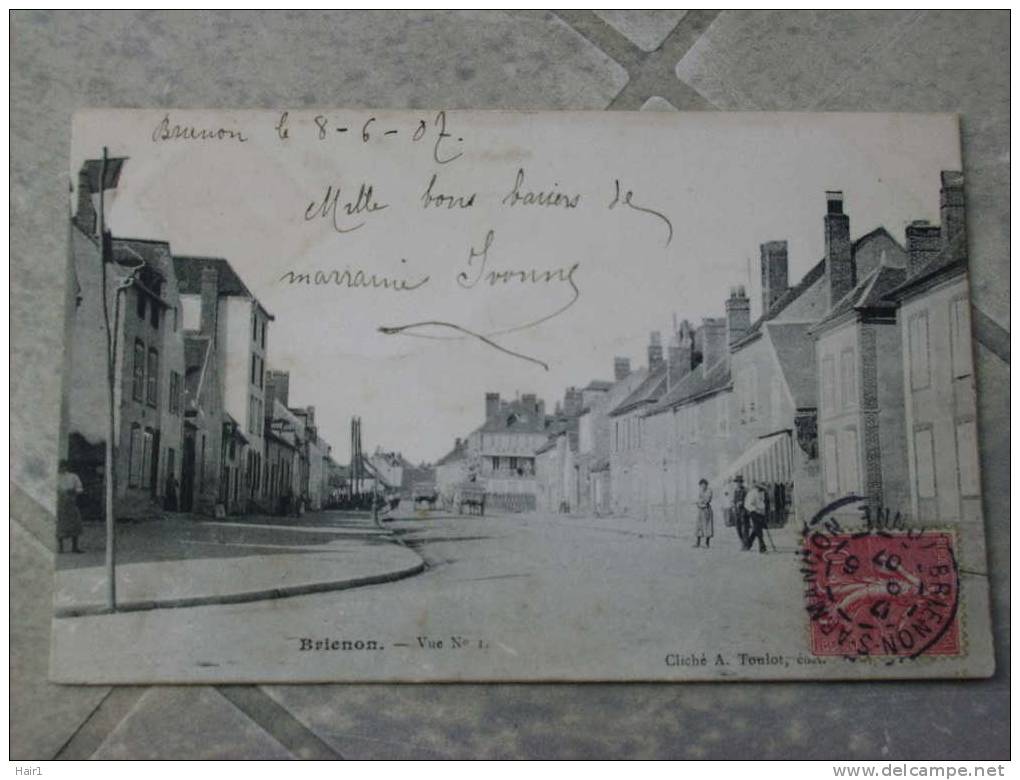 Brienon le 8-6-07.
Mille bons baisers de
marraine Yvonne
Brienon. — Vue No 1.
Cliché A. Toulot,
BRIENON-S-ARMANÇON
YONNE
Hair1
http://www.delcampe.net